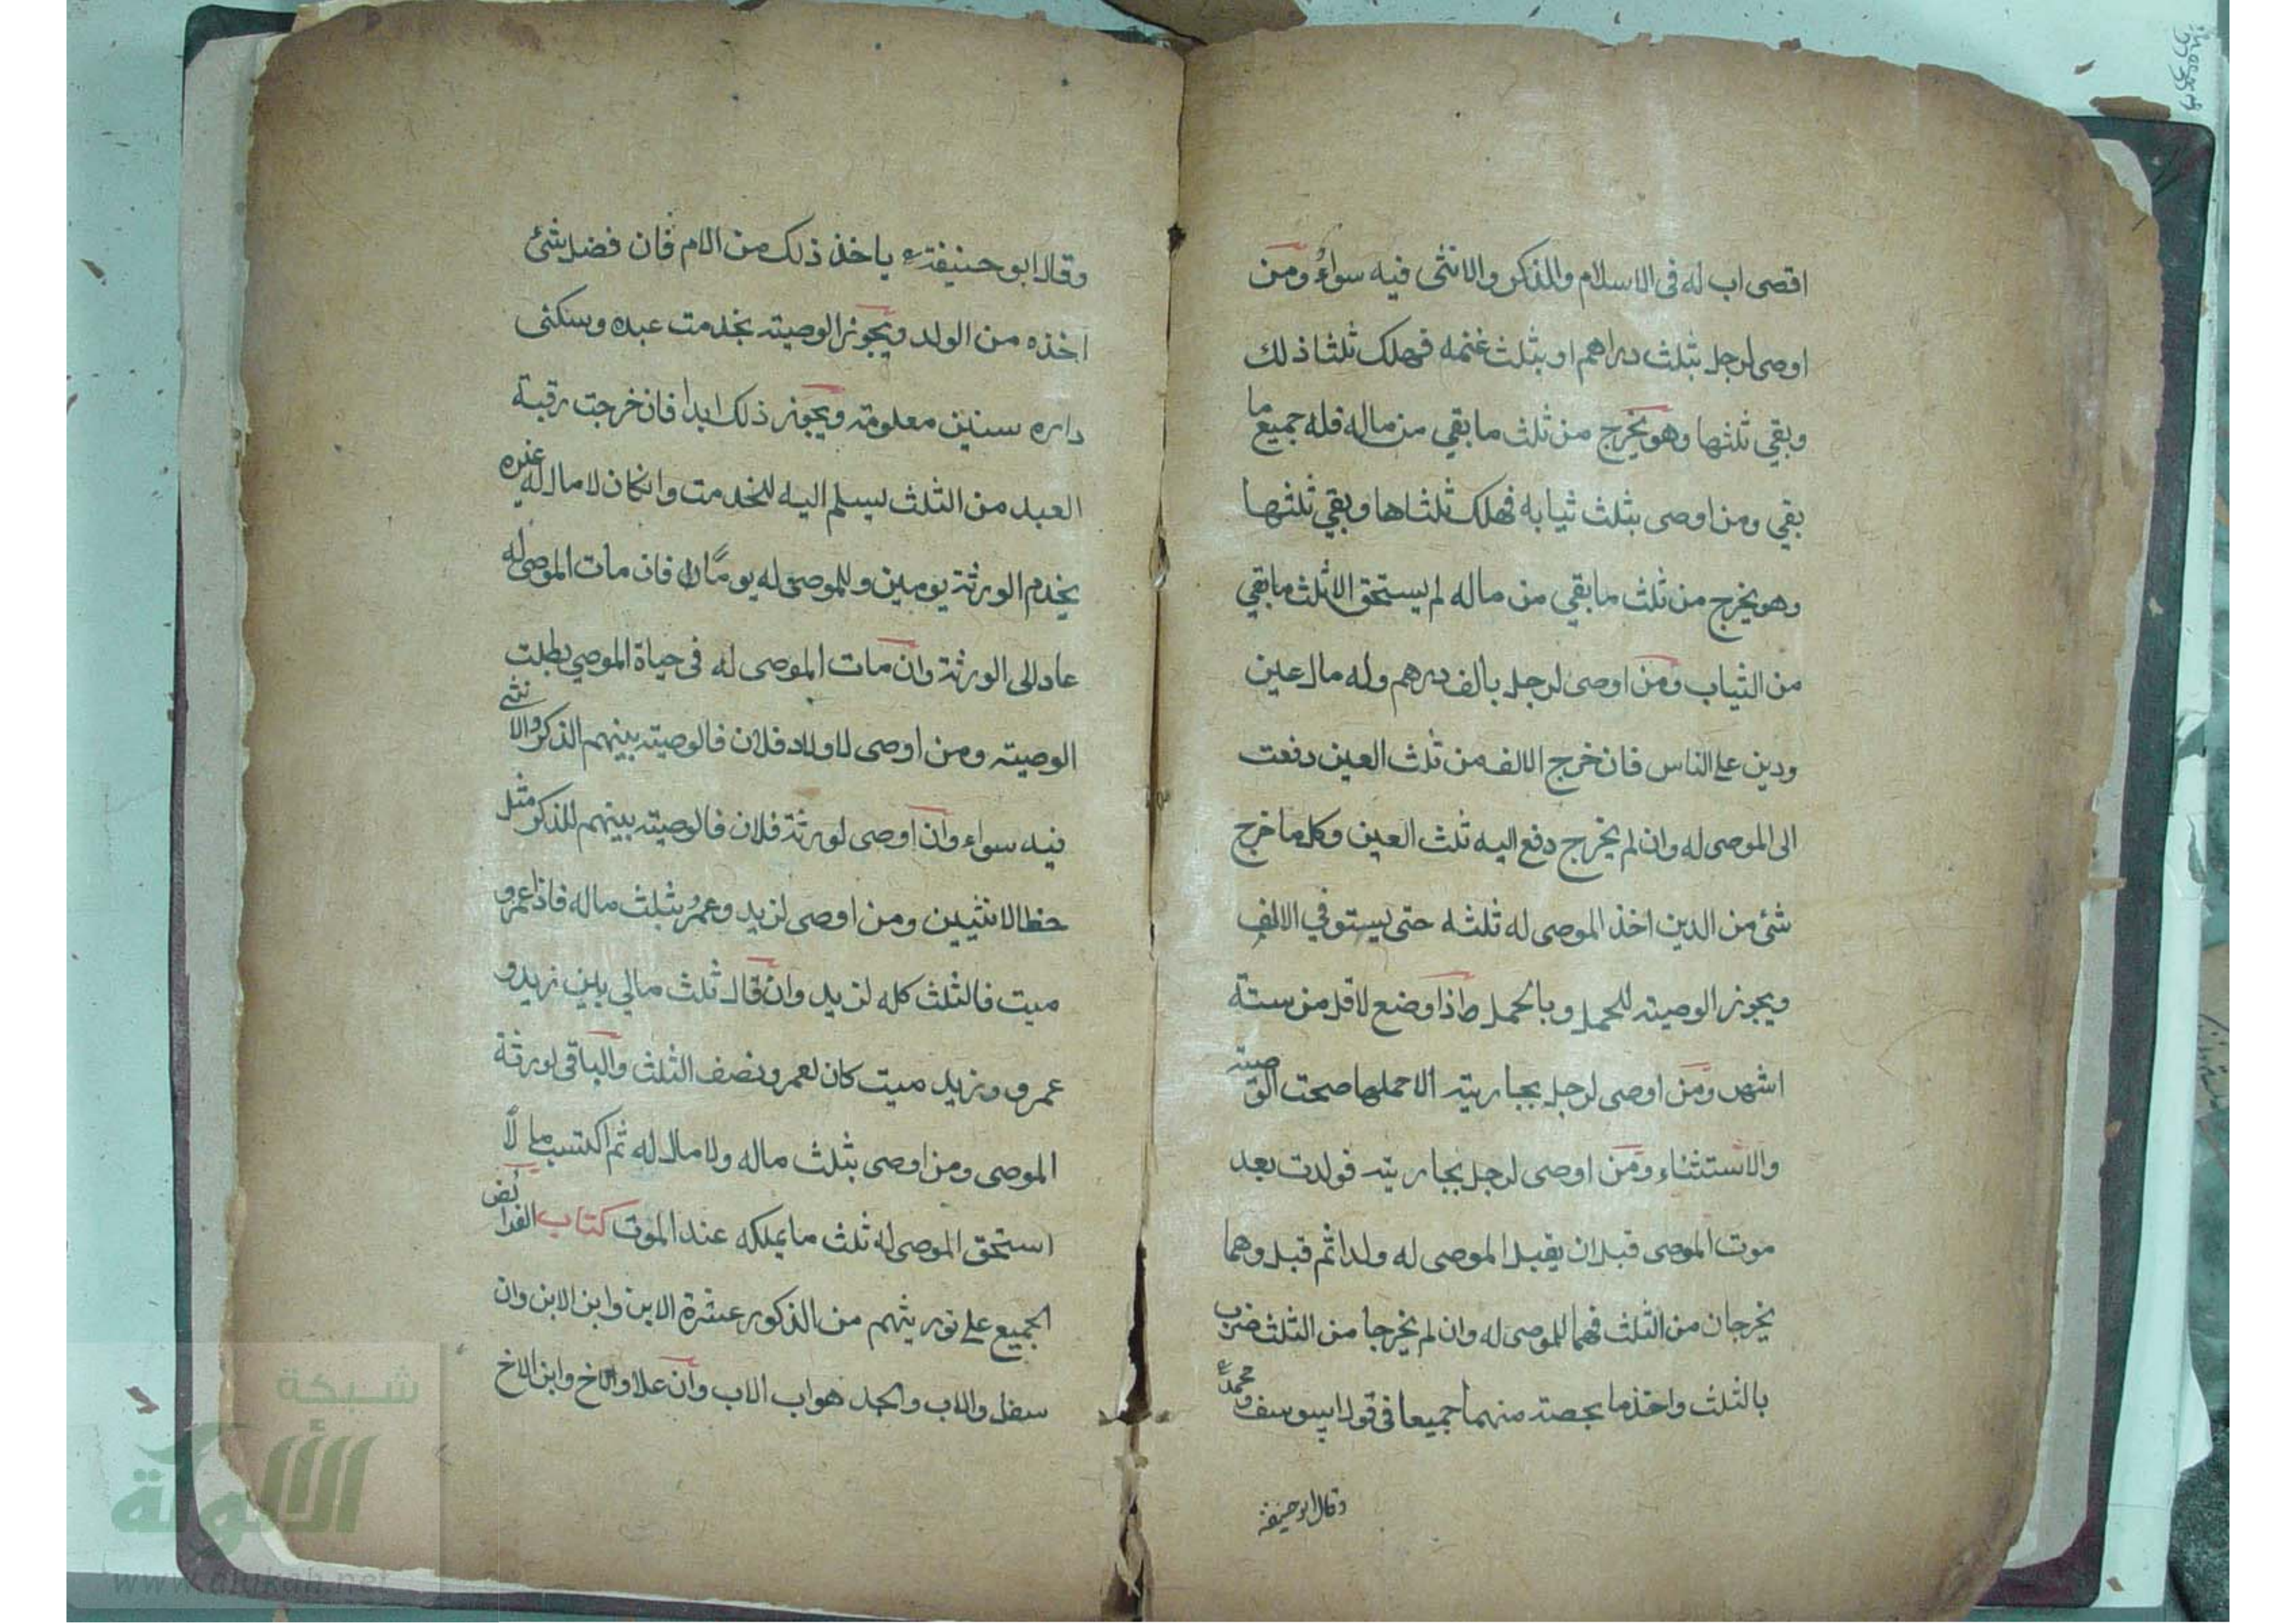 اقصى اب له فى الاسلام والذكر والانثى فيه سواءٌ ومن
اوصى لرجل بثلث دراهم او بثلث غنمه فهلك ثلثا ذلك
وبقي ثلثها وهو يخرج من ثلث ما بقي من ماله فله جميع ما
بقي ومن اوصى بثلث ثيابه فهلك ثلثاها وبقي ثلثها
وهو يخرج من ثلث ما بقي من ماله لم يستحق الا ثلث ما بقي
من الثياب ومن اوصى لرجل بالف درهم وله مال عين
ودين على الناس فان خرج الالف من ثلث العين دفعت
الى الموصى له وان لم يخرج دفع اليه ثلث العين وكل ما خرج
شئ من الدين اخذ الموصى له ثلثه حتى يستوفي الالف
ويجوز الوصيته للحمل وبالحمل اذا وضع لاقل من ستة
اشهر ومن اوصى لرجل بجاريته الا حملها صحت الوصيته
والاستثناء ومن اوصى لرجل بجاريته فولدت بعد
موت الموصى قبل ان يقبل الموصى له ولدا ثم قبل وهما
يخرجان من الثلث فهما للموصى له وان لم يخرجا من الثلث ضرب
بالثلث واخذ ما بحصته منهما جميعا فى قول ابيوسف ومحمد
وقال ابو حنيفة
وقال ابو حنيفة ياخذ ذلك من الام فان فضل شئ
اخذه من الولد ويجوز الوصيته بخدمت عبده وسكنى
داره سنين معلومته ويجوز ذلك ابدا فان خرجت رقبة
العبد من الثلث ليسلم اليه للخدمت وانكان لا مال له غيره
يخدم الورثة يومين وللموصى له يومًا فان مات الموصى له
عاد الى الورثة وان مات الموصى له فى حياة الموصي بطلت
الوصيته ومن اوصى لاولاد فلان فالوصيته بينهم الذكر والانثى
فيه سواء وان اوصى لورثة فلان فالوصيته بينهم للذكر مثل
حظ الانثيين ومن اوصى لزيد وعمرو بثلث ماله فاذا عمرو
ميت فالثلث كله لزيد وان قال ثلث مالي بين زيد و
عمرو وزيد ميت كان لعمرو نصف الثلث والباقى لورثة
الموصى ومن اوصى بثلث ماله ولا مال له ثم اكتسب مالًا
استحق الموصى له ثلث ما يملكه عند الموت كتاب الفرائض
الجميع على توريثهم من الذكور عشرة الابن وابن الابن وان
سفل والاب والجد هو اب الاب وان علا والاخ وابن الاخ
شبكة
الألوكة
www.alukah.net